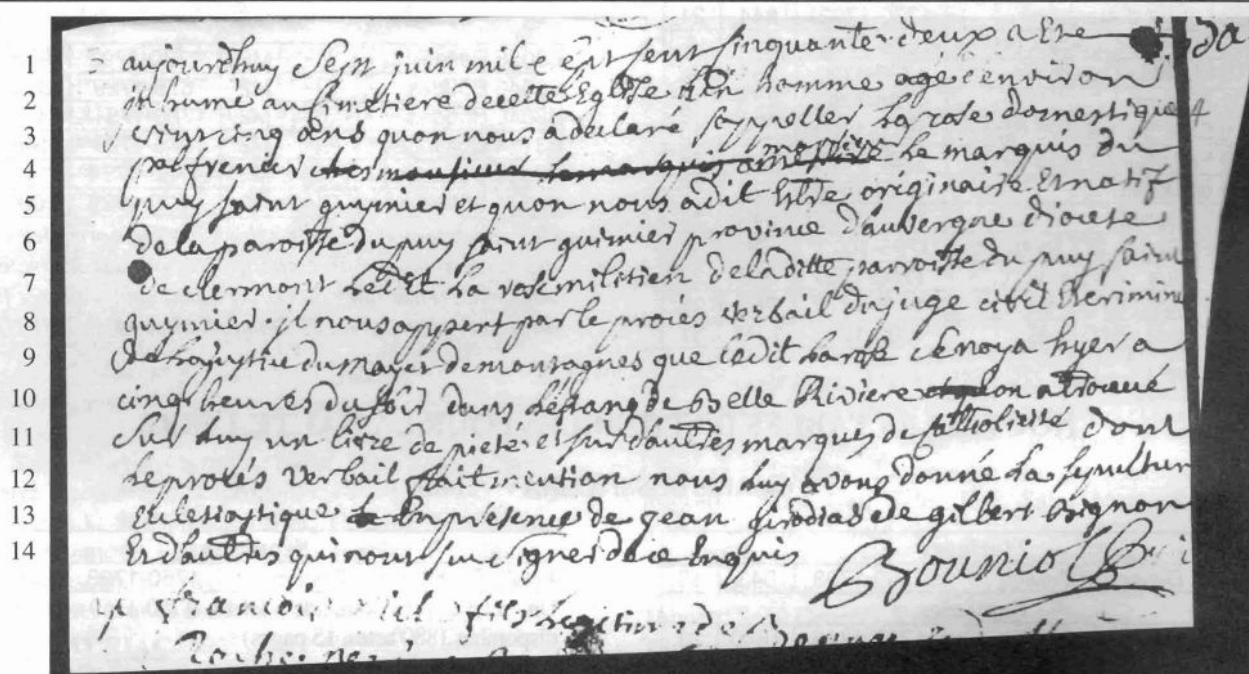 1 aujourdhuy Sept juin mile sept sent sinquante deux a Ete
2 in humé au Simetiere decette Eglise un homme agé denviron
3 vint cinq ans quon nous a declaré sappeller La rose domestique
4 palfrenier le marquis du
5 puy saint gulmier et quon nous a dit Estre originaire Et natif
6 de la paroisse du puy saint gulmier province dauvergne diocese
7 de clermont Ledit La rose militien de laditte parroisse du puy saint
8 gulmier. il nous appert par le proces verbail du juge civil Et crimine
9 du mayet de montagnes que ledit La rose ce noya hyer a
10 cinq heures du soir dans Lestang de Belle Riviere on a trouvé
11 sur Luy un livre de pieté et sur dautres marques de catholicité dont
12 Le procés verbail fait mention nous Luy avons donné La sepultur
13 Eclesiastique En presence de jean girodias de gilbert Brignon
14 Et dautres qui nont sue signer de ce Enquis Bouniol
fils Legitime de